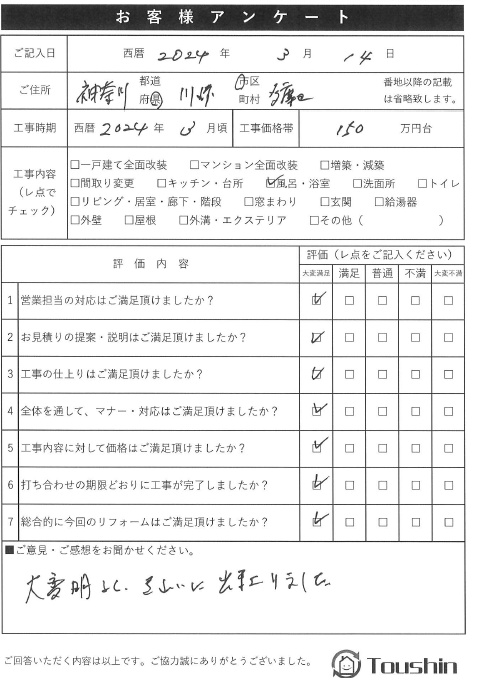 お客様アンケート
ご記入日 西暦 2024 年 3 月 14 日
ご住所 神奈川 都道府県 川崎 市区町村 多摩区 番地以降の記載は省略致します。
工事時期 西暦 2024 年 3 月頃 工事価格帯 150 万円台
工事内容（レ点でチェック）
□一戸建て全面改装 □マンション全面改装 □増築・減築
□間取り変更 □キッチン・台所 ☑風呂・浴室 □洗面所 □トイレ
□リビング・居室・廊下・階段 □窓まわり □玄関 □給湯器
□外壁 □屋根 □外溝・エクステリア □その他（ ）
評価内容 評価（レ点をご記入ください）
大変満足 満足 普通 不満 大変不満
1 営業担当の対応はご満足頂けましたか？ ☑ □ □ □ □
2 お見積りの提案・説明はご満足頂けましたか？ ☑ □ □ □ □
3 工事の仕上りはご満足頂けましたか？ ☑ □ □ □ □
4 全体を通して、マナー・対応はご満足頂けましたか？ ☑ □ □ □ □
5 工事内容に対して価格はご満足頂けましたか？ ☑ □ □ □ □
6 打ち合わせの期限どおりに工事が完了しましたか？ ☑ □ □ □ □
7 総合的に今回のリフォームはご満足頂けましたか？ ☑ □ □ □ □
■ご意見・ご感想をお聞かせください。
大変明るく、きれいに出来上りました
ご回答いただく内容は以上です。ご協力誠にありがとうございました。
Toushin